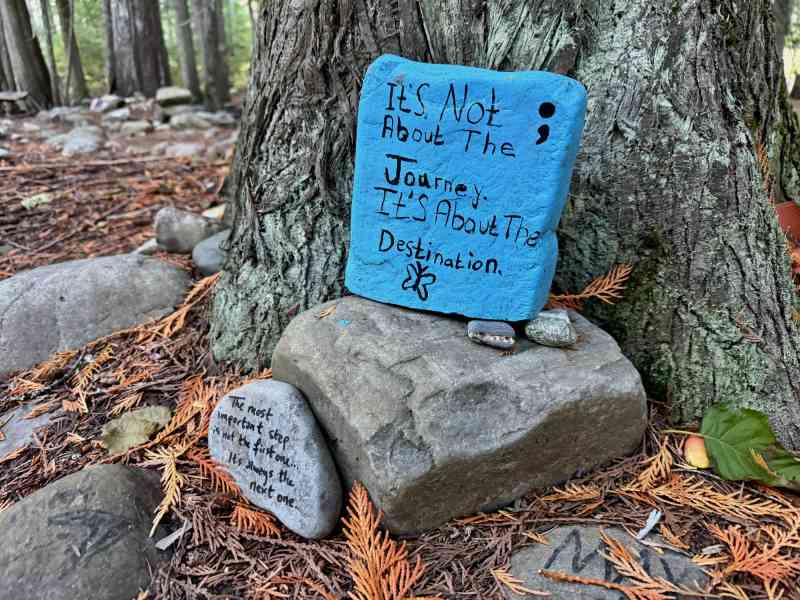 It's Not
About The
Journey.
It's About The
Destination.
;
The most
important step
is not the first one...
It's always the
next one.